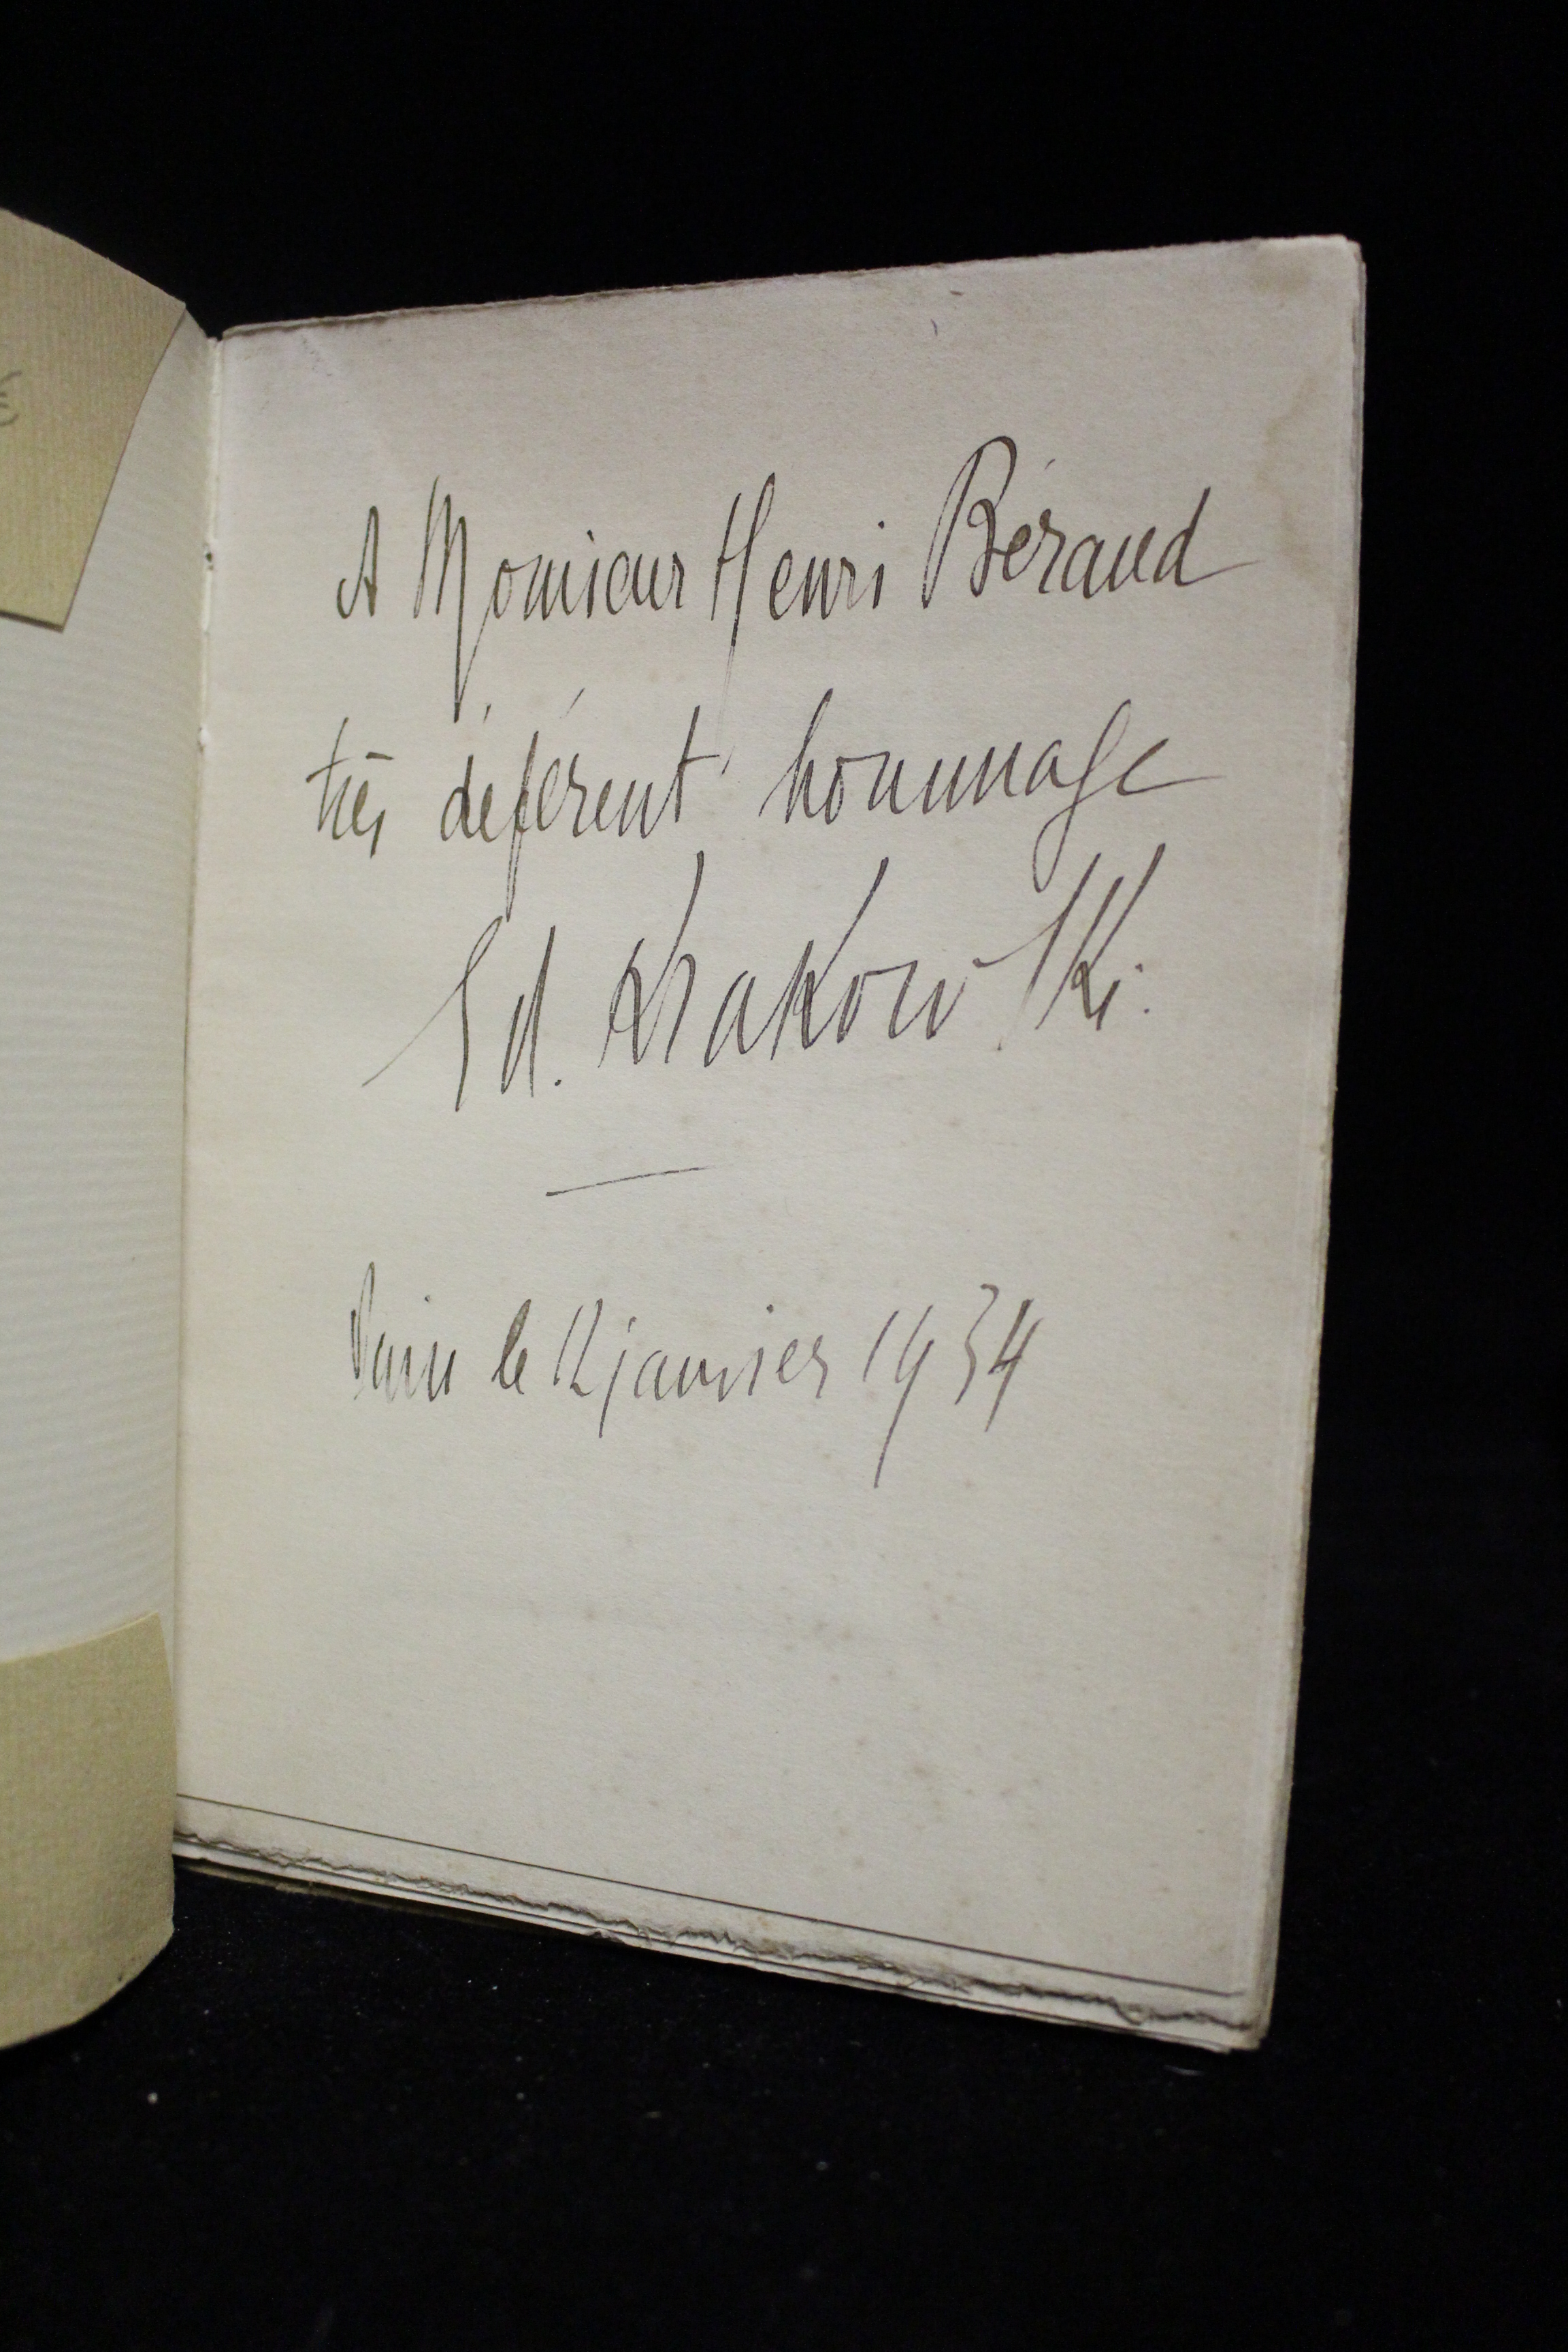 A Monsieur Henri Béraud
très déférent hommage
Ed. Krakowski.
Paris le 12 janvier 1934